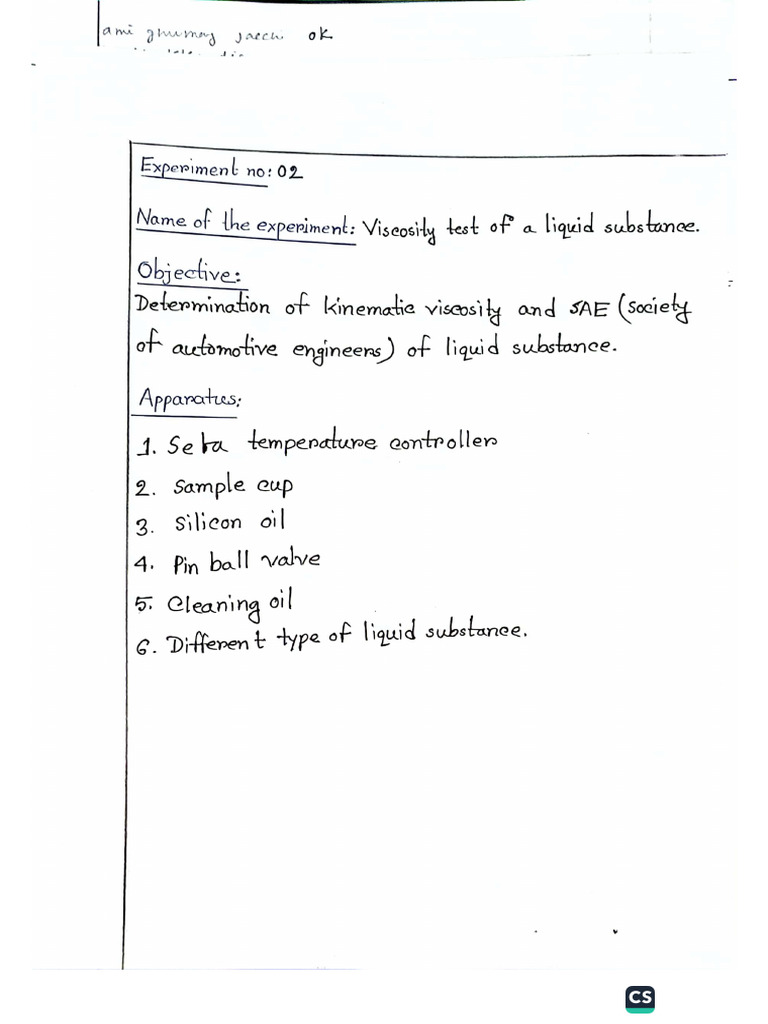 ami ghumay jacchi ok
Experiment no: 02
Name of the experiment: Viscosity test of a liquid substance.
Objective:
Determination of kinematic viscosity and SAE (society
of automotive engineers) of liquid substance.
Apparatus:
1. Seta temperature controller
2. Sample cup
3. Silicon oil
4. Pin ball valve
5. Cleaning oil
6. Different type of liquid substance.
CS